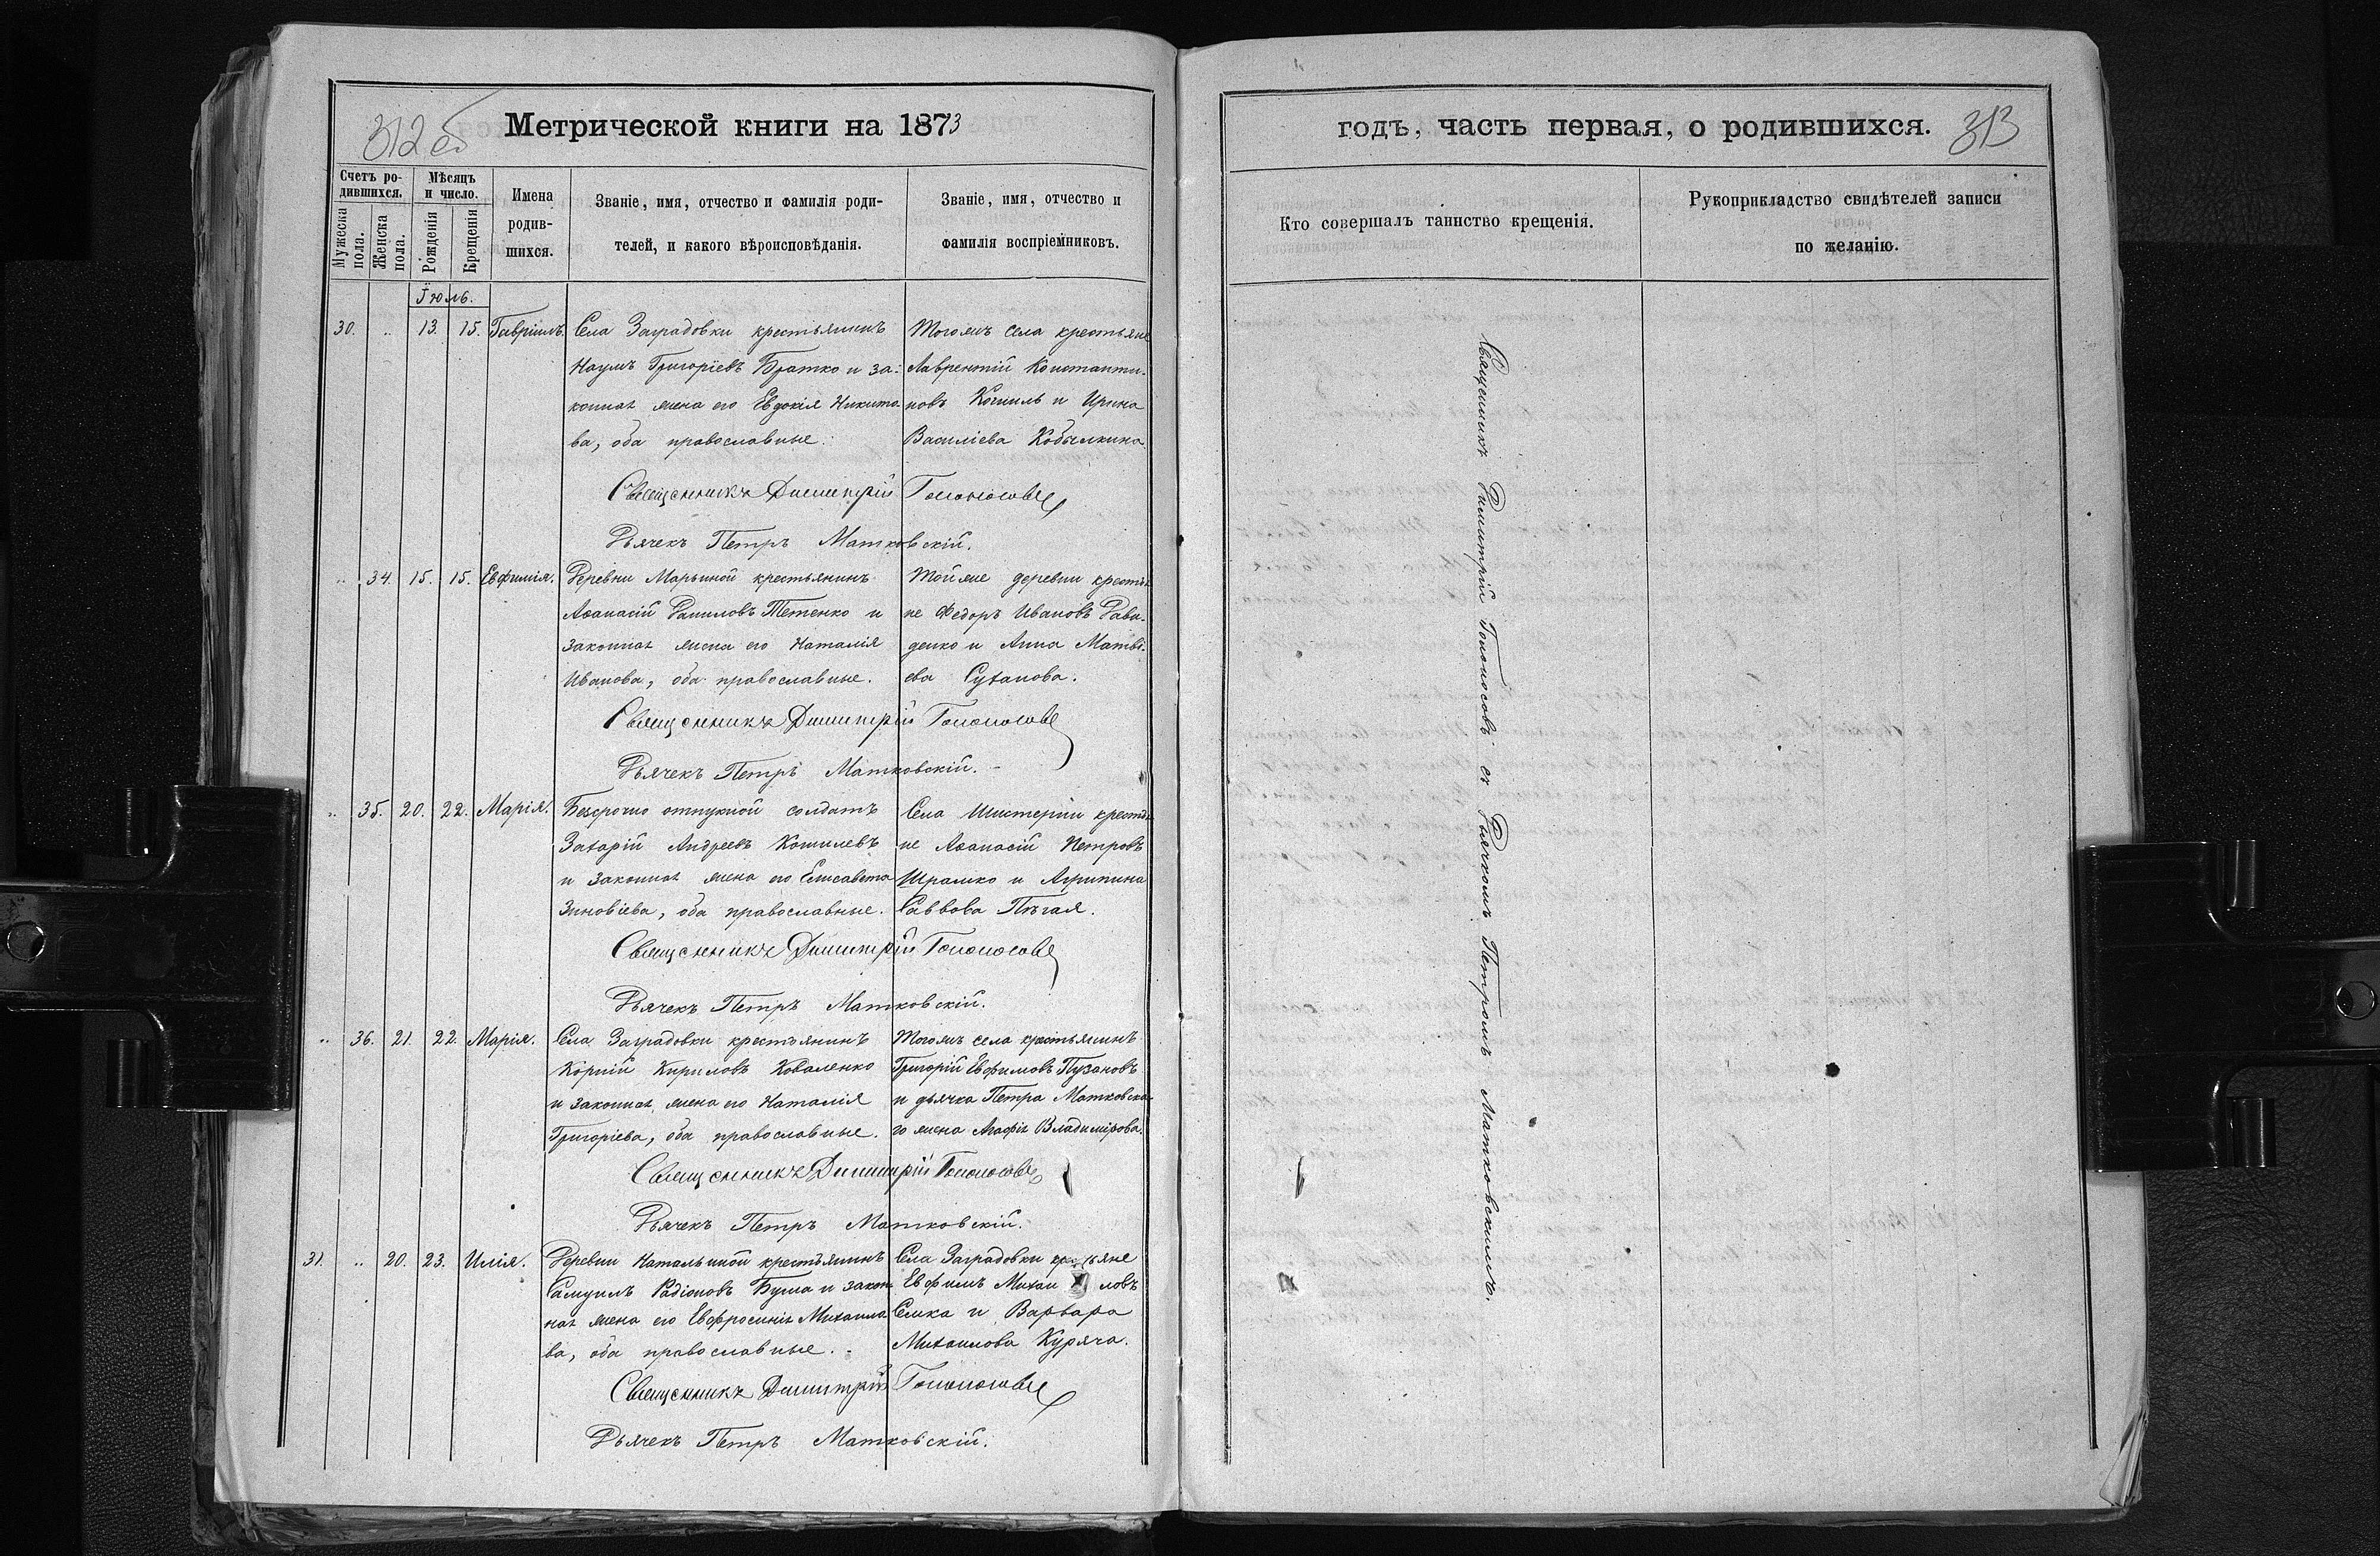 312 об
Метрической книги на 1873
Счетъ ро-
дившихся.
Мѣсяцъ
и число.
Мужеска
пола.
Женска
пола.
Рожденія
Крещенія
Имена
родив-
шихся.
Званіе, имя, отчество и фамилія роди-
телей, и какого вѣроисповѣданія.
Званіе, имя, отчество и
фамилія воспріемниковъ.
Іюль.
30. .. 13. 15. Гавріилъ.
Села Заградовки крестьянинъ
Наумъ Григоріевъ Братко и за-
конная жена его Евдокія Никито-
ва, оба православные.
Тогожъ села крестьяне
Лаврентій Константи-
новъ и Ирина
Василіева Кобылкина
Священникъ Димитрій Голоносовъ
Дьячекъ Петръ Матковскій.
.. 34. 15. 15. Евфимія.
Деревни Марьиной крестьянинъ
Аѳанасій Даниловъ Тетенко и
законная жена его Наталія
Иванова, оба православные.
Той же деревни крестья
не Федоръ Ивановъ Дави-
денко и Анна Матвѣ-
ева Суханова.
Священникъ Димитрій Голоносовъ
Дьячекъ Петръ Матковскій.
.. 35. 20. 22. Марія.
Безсрочно отпускной солдатъ
Захарій Андреевъ Кошилевъ
и законная жена его Елисавета
Зиновіева, оба православные.
Села Шестерни крестья
не Аѳанасій Петровъ
Шрамко и Агрипина
Саввова Пѣгая.
Священникъ Димитрій Голоносовъ
Дьячекъ Петръ Матковскій.
.. 36. 21. 22. Марія.
Села Заградовки крестьянинъ
Корній Кириловъ Коваленко
и законная жена его Наталія
Григоріева, оба православные.
Тогожъ села крестьянинъ
Григорій Евфимовъ Пузановъ
и дьячка Петра Матковска-
го жена Агафія Владимірова.
Священникъ Димитрій Голоносовъ
Дьячекъ Петръ Матковскій.
31. .. 20. 23. Илія.
Деревни Натальиной крестьянинъ
Самуилъ Радіоновъ Буша и закон
ная жена его Евфросинія Михаило
ва, оба православные.
Села Заградовки крестьяне
Евфимъ Михаиловъ
Семка и Варвара
Михаилова Куряча.
Священникъ Димитрій Голоносовъ
Дьячекъ Петръ Матковскій.
годъ, часть первая, о родившихся.
313
Кто совершалъ таинство крещенія.
Рукоприкладство свидѣтелей записи
по желанію.
Священникъ Димитрій Голоносовъ съ Дьячкомъ Петромъ Матковскимъ.